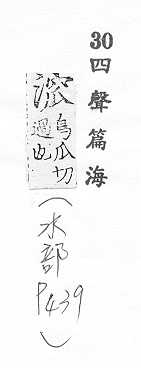 30四聲篇海
烏瓜切
過也
(水部P439)